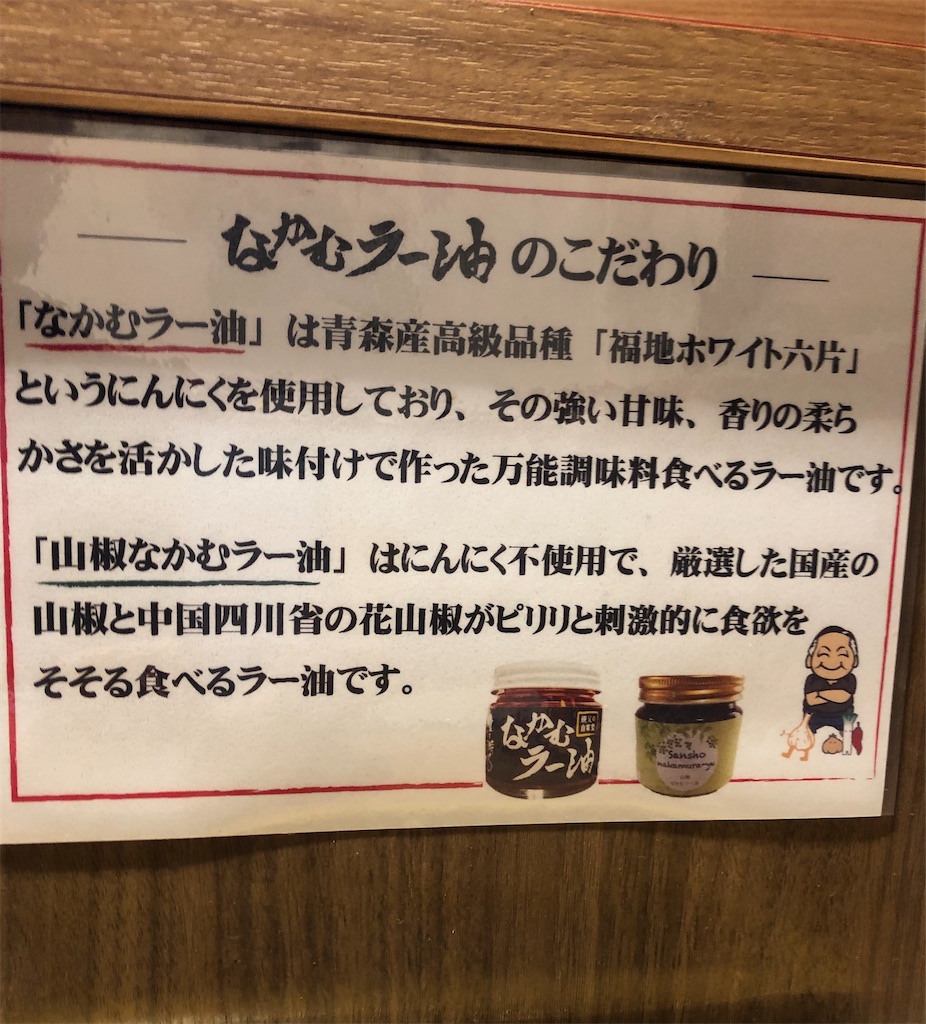 なかむラー油のこだわり
「なかむラー油」は青森産高級品種「福地ホワイト六片」
というにんにくを使用しており、その強い甘味、香りの柔ら
かさを活かした味付けで作った万能調味料食べるラー油です。
「山椒なかむラー油」はにんにく不使用で、厳選した国産の
山椒と中国四川省の花山椒がピリリと刺激的に食欲を
そそる食べるラー油です。
なかむ
ラー油
Sansho